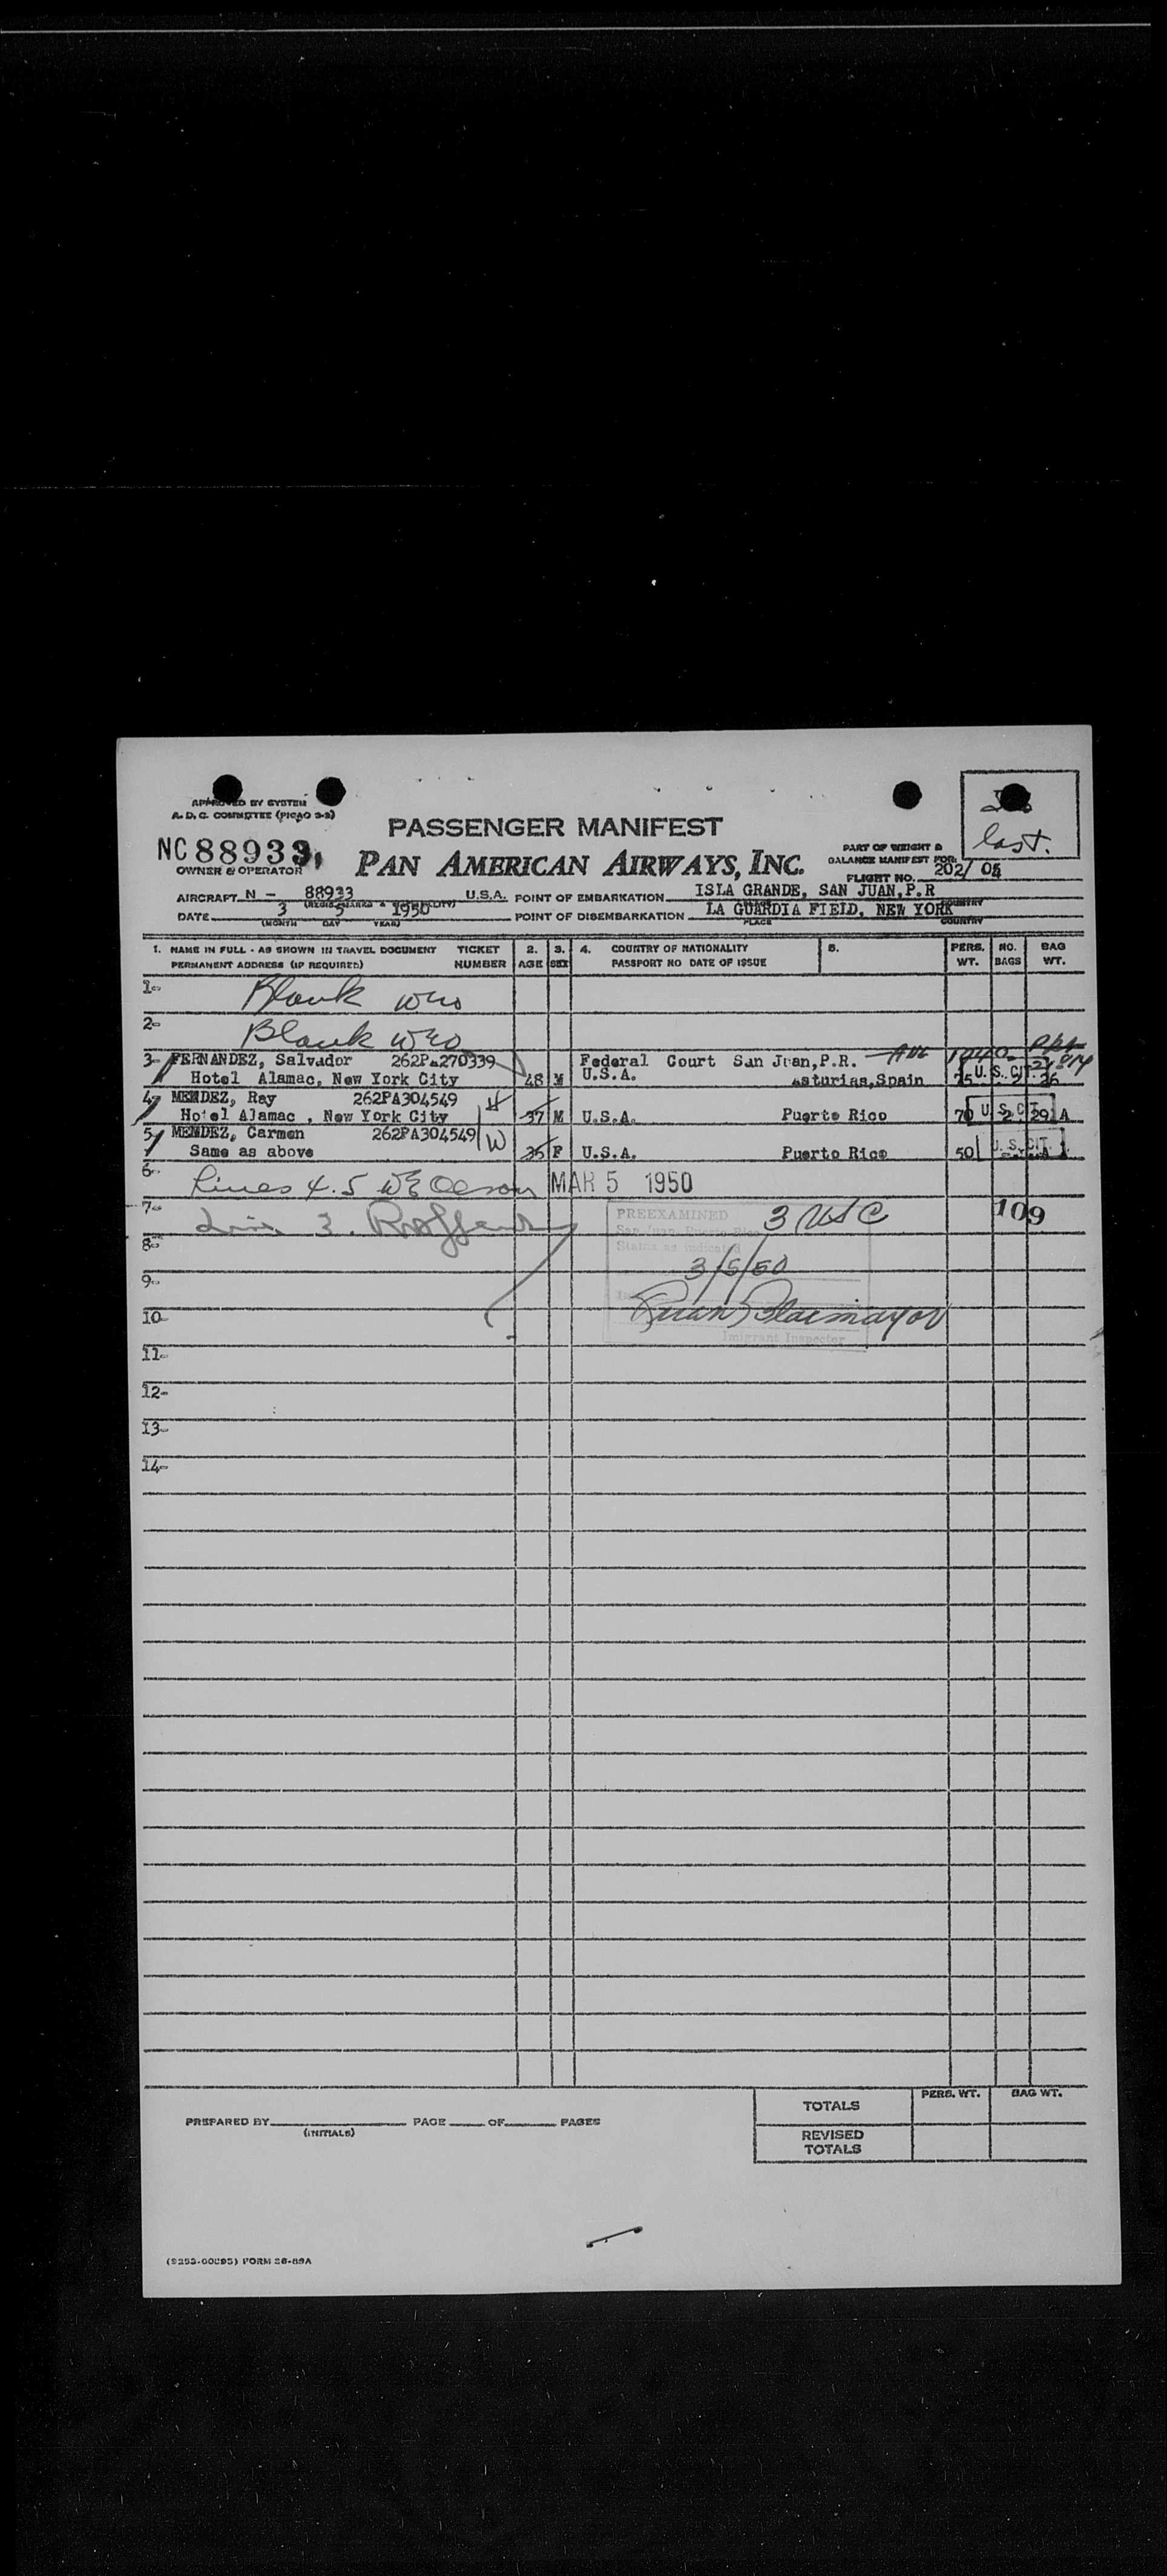 APPROVED BY SYSTEM
A. D. C. COMMITTEE (PICAO 3-3)
last.
PASSENGER MANIFEST
NC 88933
OWNER & OPERATOR
PAN AMERICAN AIRWAYS, INC.
PART OF WEIGHT &
BALANCE MANIFEST FOR:
FLIGHT NO. 202/ 05
AIRCRAFT N - 88933 U.S.A. POINT OF EMBARKATION ISLA GRANDE, SAN JUAN, P.R COUNTRY
DATE 3 5 1950 POINT OF DISEMBARKATION LA GUARDIA FIELD, NEW YORK
(MONTH DAY YEAR) PLACE COUNTRY
1. NAME IN FULL - AS SHOWN IN TRAVEL DOCUMENT TICKET 2. 3. 4. COUNTRY OF NATIONALITY 5. PERS. NO. BAG
PERMANENT ADDRESS (IF REQUIRED) NUMBER AGE SEX PASSPORT NO DATE OF ISSUE WT. BAGS WT.
1- Blank
2- Blank
3- FERNANDEZ, Salvador 262PA270339 Federal Court San Juan,P.R.
Hotel Alamac, New York City 48 M U.S.A. Asturias,Spain 75 U.S. CIT. 26
4- MENDEZ, Ray 262PA304549 H
Hotel Alamac , New York City 37 M U.S.A. Puerto Rico 70 U.S.CIT. 2 39 A
5- MENDEZ, Carmen 262PA304549 W
Same as above 35 F U.S.A. Puerto Rico 50 U.S.CIT.
6- Lines 4.5 MAR 5 1950
7- Line 3. PREEXAMINED 3 USC 109
San Juan, Puerto Rico
8- Status as indicated
9- 3/5/50
10- Juan
Imigrant Inspector
11-
12-
13-
14-
PERS. WT. BAG WT.
TOTALS
PREPARED BY PAGE OF PAGES
(INITIALS)
REVISED
TOTALS
(9253-00095) FORM 26-89A